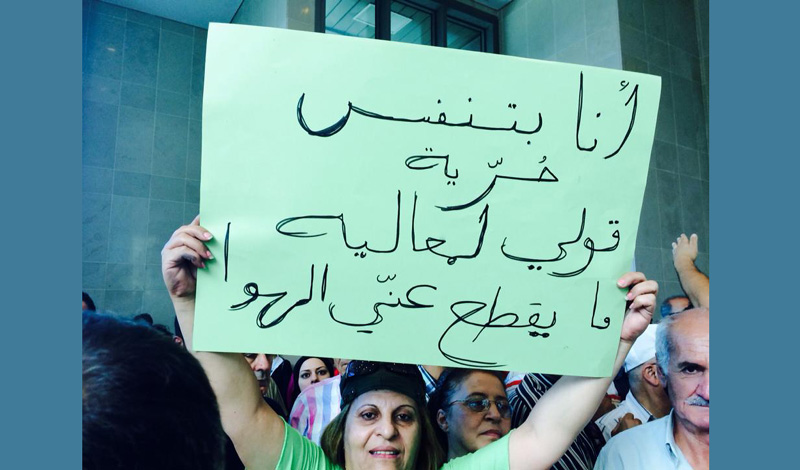 أنا بتنفس
حُرّية
قولي لمعاليه
ما يقطع عنّي الهوا